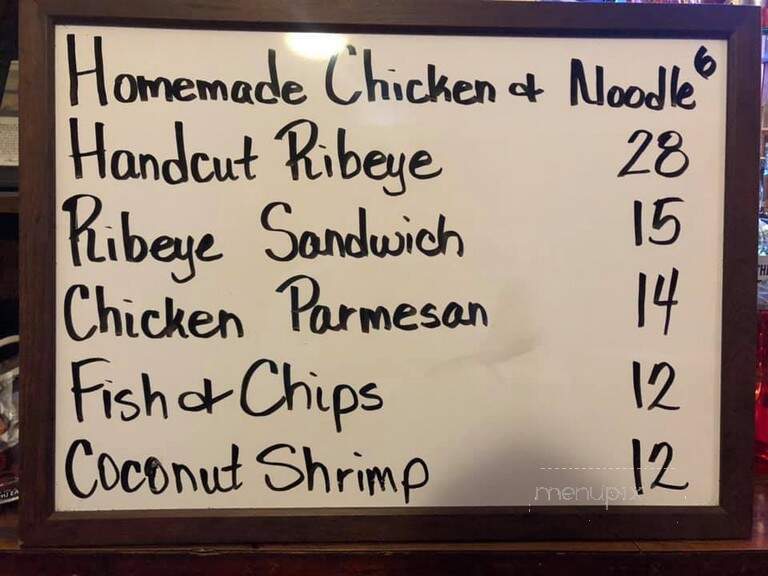 Homemade Chicken & Noodle 6
Handcut Ribeye 28
Ribeye Sandwich 15
Chicken Parmesan 14
Fish & Chips 12
Coconut Shrimp 12
menupix